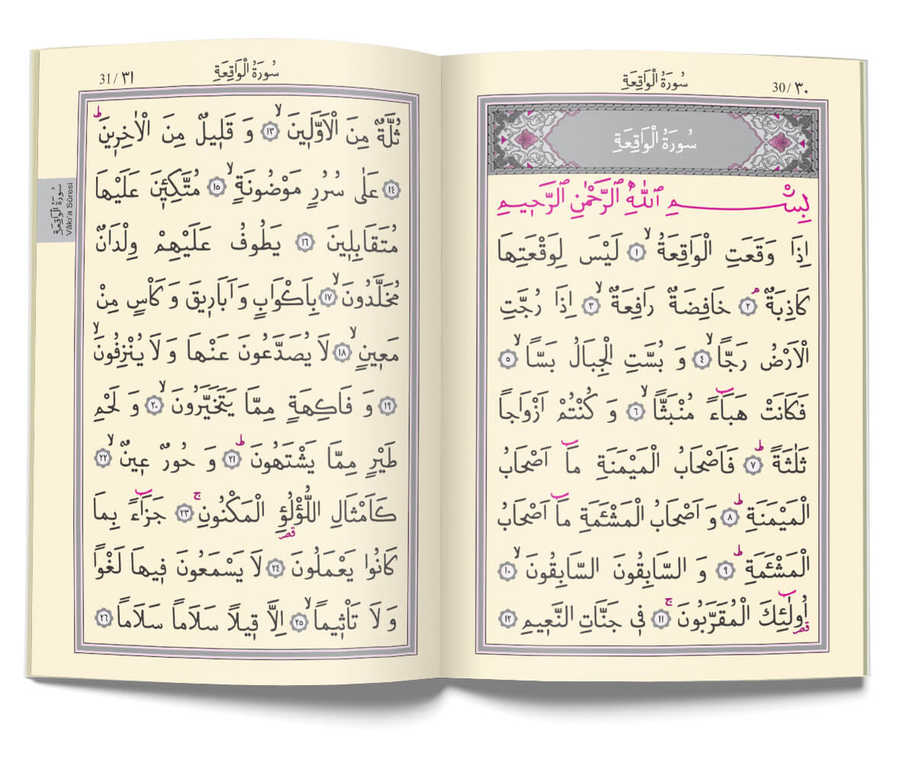 سُورَةُ الْوَاقِعَةِ
30 / ٣٠
سُورَةُ الْوَاقِعَةِ
بِسْمِ اللّٰهِ الرَّحْمٰنِ الرَّحِيمِ
اِذَا وَقَعَتِ الْوَاقِعَةُ ﴿١﴾ لَيْسَ لِوَقْعَتِهَا
كَاذِبَةٌ ﴿٢﴾ خَافِضَةٌ رَافِعَةٌ ﴿٣﴾ اِذَا رُجَّتِ
الْاَرْضُ رَجًّا ﴿٤﴾ وَ بُسَّتِ الْجِبَالُ بَسًّا ﴿٥﴾
فَكَانَتْ هَبَاءً مُنْبَثًّا ﴿٦﴾ وَ كُنْتُمْ اَزْوَاجًا
ثَلٰثَةً ﴿٧﴾ فَاَصْحَابُ الْمَيْمَنَةِ مَا اَصْحَابُ
الْمَيْمَنَةِ ﴿٨﴾ وَ اَصْحَابُ الْمَشْئَمَةِ مَا اَصْحَابُ
الْمَشْئَمَةِ ﴿٩﴾ وَ السَّابِقُونَ السَّابِقُونَ ﴿١٠﴾
اُولٰئِكَ الْمُقَرَّبُونَ ﴿١١﴾ فِي جَنَّاتِ النَّعِيمِ ﴿١٢﴾
31 / ٣١
سُورَةُ الْوَاقِعَةِ
ثُلَّةٌ مِنَ الْاَوَّلِينَ ﴿١٣﴾ وَ قَلِيلٌ مِنَ الْاٰخِرِينَ
﴿١٤﴾ عَلٰى سُرُرٍ مَوْضُونَةٍ ﴿١٥﴾ مُتَّكِئِينَ عَلَيْهَا
مُتَقَابِلِينَ ﴿١٦﴾ يَطُوفُ عَلَيْهِمْ وِلْدَانٌ
مُخَلَّدُونَ ﴿١٧﴾ بِاَكْوَابٍ وَ اَبَارِيقَ وَ كَاْسٍ مِنْ
مَعِينٍ ﴿١٨﴾ لَا يُصَدَّعُونَ عَنْهَا وَ لَا يُنْزِفُونَ
﴿١٩﴾ وَ فَاكِهَةٍ مِمَّا يَتَخَيَّرُونَ ﴿٢٠﴾ وَ لَحْمِ
طَيْرٍ مِمَّا يَشْتَهُونَ ﴿٢١﴾ وَ حُورٌ عِينٌ ﴿٢٢﴾
كَاَمْثَالِ اللُّؤْلُؤِ الْمَكْنُونِ ﴿٢٣﴾ جَزَاءً بِمَا
كَانُوا يَعْمَلُونَ ﴿٢٤﴾ لَا يَسْمَعُونَ فِيهَا لَغْوًا
وَ لَا تَاْثِيمًا ﴿٢٥﴾ اِلَّا قِيلًا سَلَامًا سَلَامًا ﴿٢٦﴾
سُورَةُ الْوَاقِعَةِ
Vâkı'a Sûresi